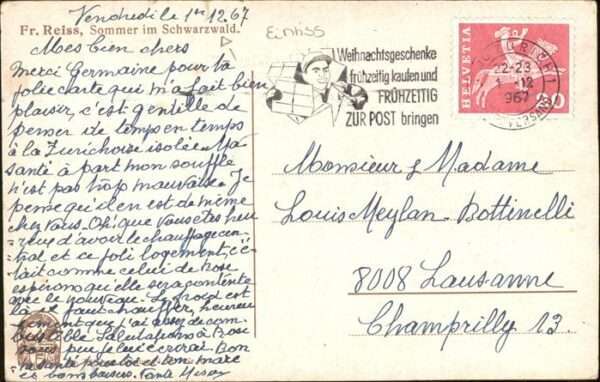 Vendredi le 1er 12.67
Fr. Reiss, Sommer im Schwarzwald.
Mes bien chers
Merci Germaine pour ta
jolie carte qui m'a fait bien
plaisir, c'est gentille de
penser de temps en temps
à la Zurichoise isolée. Ma
santé à part mon souffle
n'est pas trop mauvaise. Je
pense qu'il en est de même
chez vous. Oh! que vous êtes heu
reuse d'avoir le chauffage cen
tral et ce joli logement, c'é
tait comme celui de Rose
espérons qu'elle sera contente
avec le nouveau. Le froid est
là il faut chauffer, heureu
sement que j'ai assez de com
bustible. Salutations à Rose
je lui écrirai. Bon
santé pour toi et ton mari
et bons baisers. Tante
Weihnachtsgeschenke
frühzeitig kaufen und
FRÜHZEITIG
ZUR POST bringen
22-23
1 12
967
HELVETIA
Monsieur & Madame
Louis Meylan-Bottinelli
8008 Lausanne
Champrilly 13.